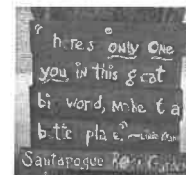 "heres only one
you in this great
big word, make t a
bette pla e."
Santaroque Garden